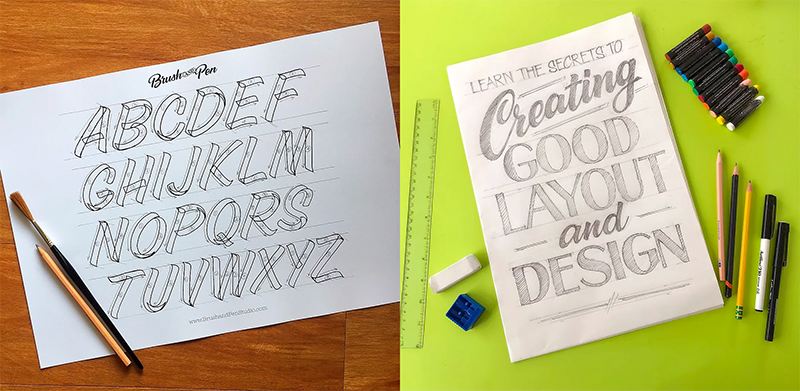 Brush and Pen
ABCDEF
GHIJKLM
NOPQRS
TUVWXYZ
www.BrushandPenStudio.com
LEARN THE SECRETS TO
Creating
GOOD
LAYOUT
and
DESIGN